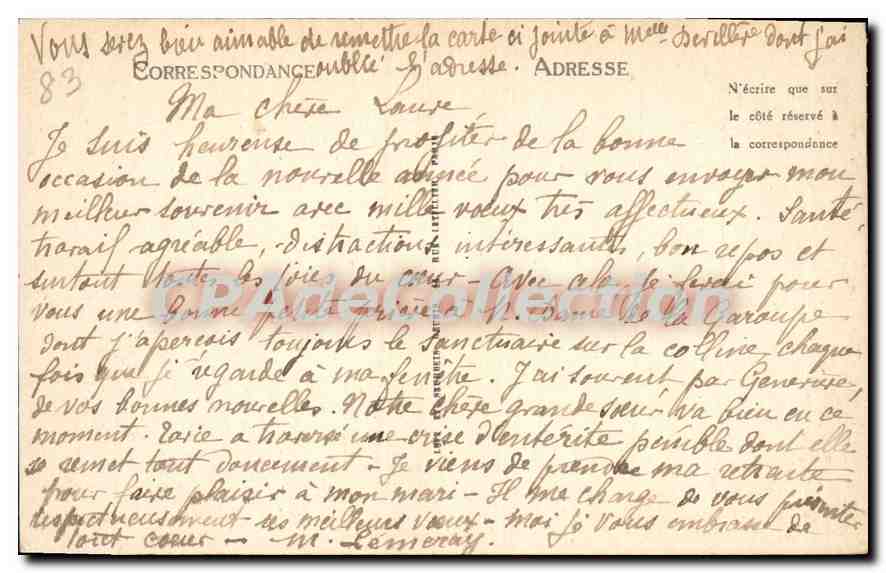 Vous serez bien aimable de remettre la carte ci jointe à Melle Derillère dont j'ai
oublié l'adresse.
83
CORRESPONDANCE ADRESSE
N'écrire que sur
le côté réservé à
la correspondance
Ma chère Laure
Je suis heureuse de profiter de la bonne
occasion de la nouvelle année pour vous envoyer mon
meilleur souvenir avec mille vœux très affectueux. Santé,
travail agréable, distractions intéressantes, bon repos et
surtout toutes les joies du cœur - Avec cela je ferai pour
vous une bonne petite prière à N. Dame de la Garoupe
dont j'aperçois toujours le sanctuaire sur la colline, chaque
fois que je regarde à ma fenêtre. J'ai souvent par Geneviève,
de vos bonnes nouvelles. Notre chère grande sœur va bien en ce
moment. a traversé une crise d'entérite pénible dont elle
se remet tout doucement - Je viens de prendre ma retraite
pour faire plaisir à mon mari - Il me charge de vous présenter
respectueusement ses meilleurs vœux - moi je vous embrasse de
tout cœur - M. Lémeray.
CPAdeCollection